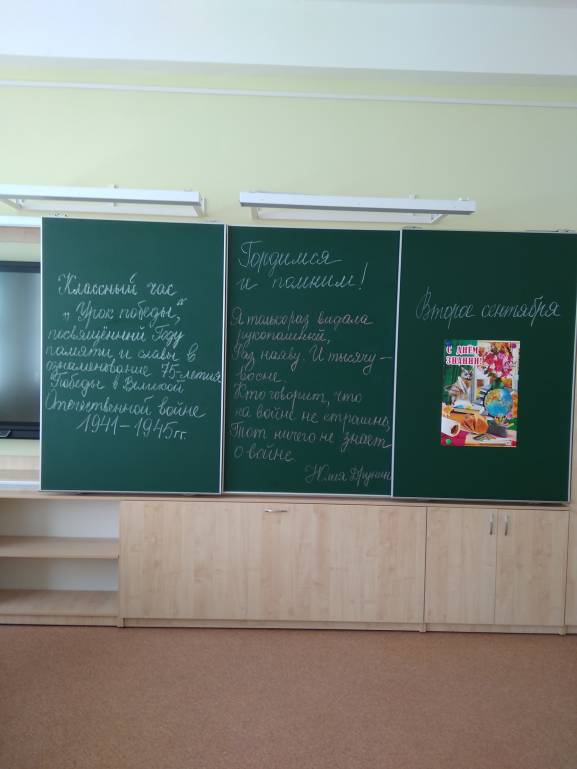 Классный час
„Урок победы,“
посвящённый Году
памяти и славы в
ознаменование 75-летия
Победы в Великой
Отечественной войне
1941-1945 гг.
Гордимся
и помним!
Я только раз видала
рукопашный,
Раз наяву. И тысячу -
во сне.
Кто говорит, что
на войне не страшно,
Тот ничего не знает
о войне
Юлия Друнин
Второе сентября
С ДНЁМ
ЗНАНИЙ!